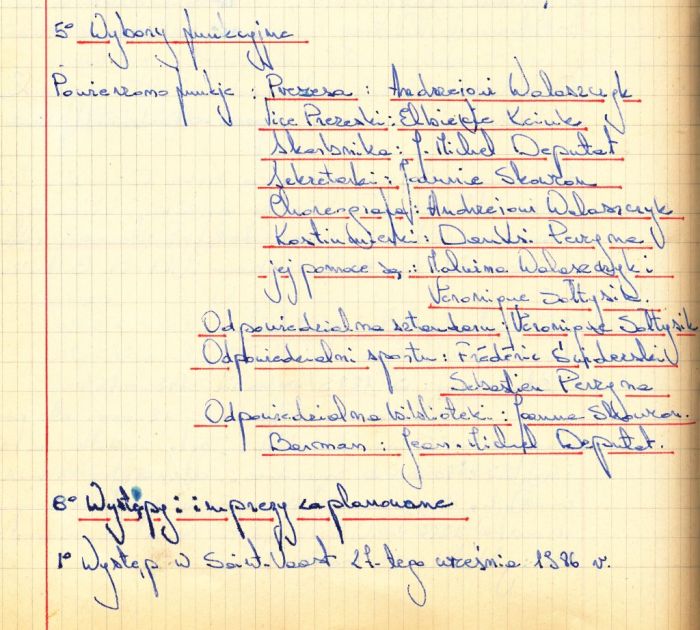 5° Wybory funkcyjne
Powierzono funkcje : Prezesa : Andrzejowi Walaszczyk
Vice Prezeski : Elbiecie Kcinik
Skarbnika : J. Michel Deputat
Sekretarki : Joannie Skowron
Choreografa : Andrzejowi Walaszczyk
Kostiumierki : Danki Perzyna
jej pomoce są : Malwina Walaszczyk i
Véronique Sołtysik.
Odpowiedzialna sztandaru : Véronique Sołtysik
Odpowiedzialni sportu : Frédéric Świderski
Sébastien Perzyna
Odpowiedzialna biblioteki : Joanna Skowron.
Barman : Jean-Michel Deputat.
6° Występy i imprezy zaplanowane
1° Występ w Saint-Vaast 27-tego września 1986 r.